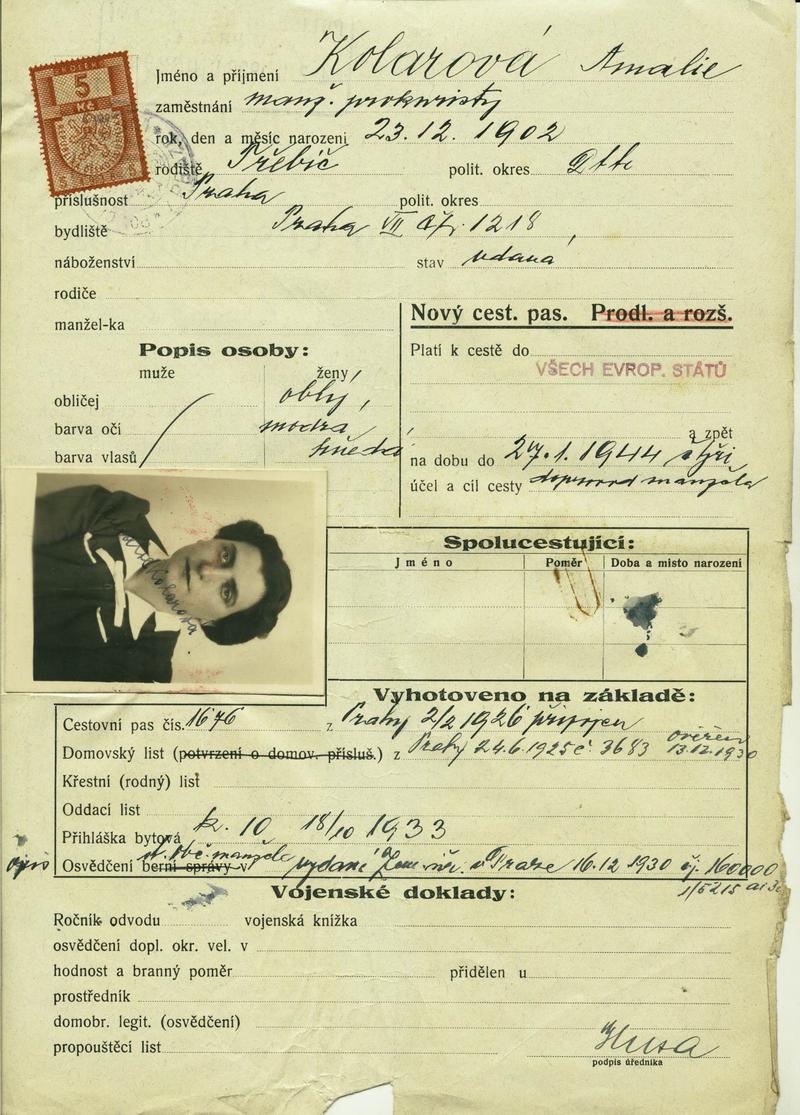 5
Kč
Jméno a příjmení Kolarová Amalie
zaměstnání manž. prokuristy
rok, den a měsíc narození 23.12. 1902
rodiště Třebíč polit. okres Dtto
příslušnost Praha polit. okres
bydliště Praha VII čp. 1218
náboženství stav vdaná
rodiče
manžel-ka
Nový cest. pas. Prodl. a rozš.
Popis osoby:
Platí k cestě do
VŠECH EVROP. STÁTŮ
muže ženy
obličej oblý
barva očí modrá
barva vlasů hnědá
a zpět
na dobu do 27.1. 1944
účel a cíl cesty doprovod manžela
Spolucestující:
Jméno Poměr Doba a místo narození
Vyhotoveno na základě:
Cestovní pas čís. 1676 z Prahy 2/2 1926 připojen
Domovský list (potvrzení o domov. přísluš.) z Prahy 24.6.1925 č. 3683 ověřen 13.12.1930
Křestní (rodný) list
Oddací list
Přihláška bytová k. 10 18/10 1933
opis Osvědčení berní správy v st. obč. manžela vydané v Praze 16.12 1930 čj.
Vojenské doklady:
Ročník odvodu vojenská knížka
osvědčení dopl. okr. vel. v
hodnost a branný poměr přidělen u
prostředník
domobr. legit. (osvědčení)
propouštěcí list
Husa
podpis úředníka